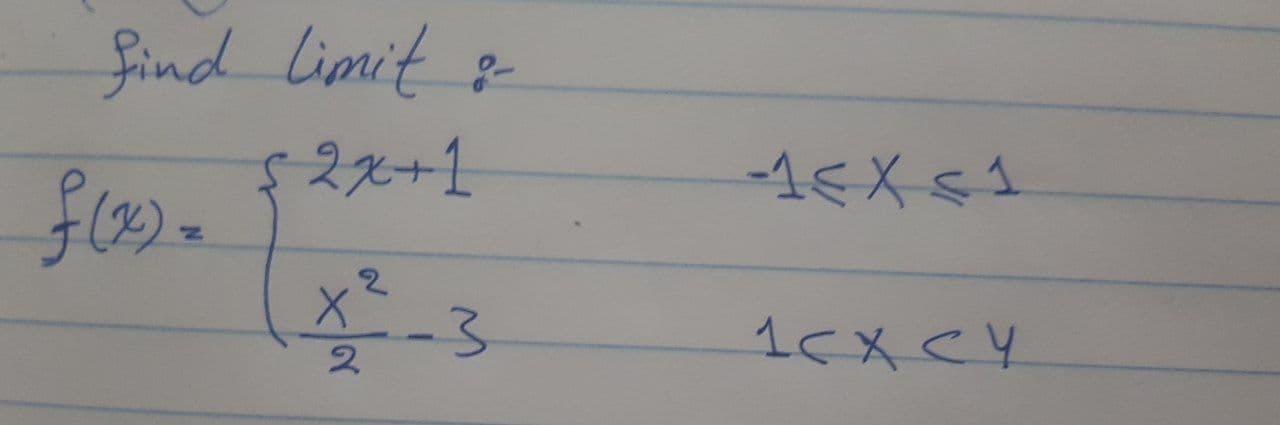 find limit :-
f(x) = { 2x+1    -1 ≤ x ≤ 1
x²/2 - 3    1 < x < 4